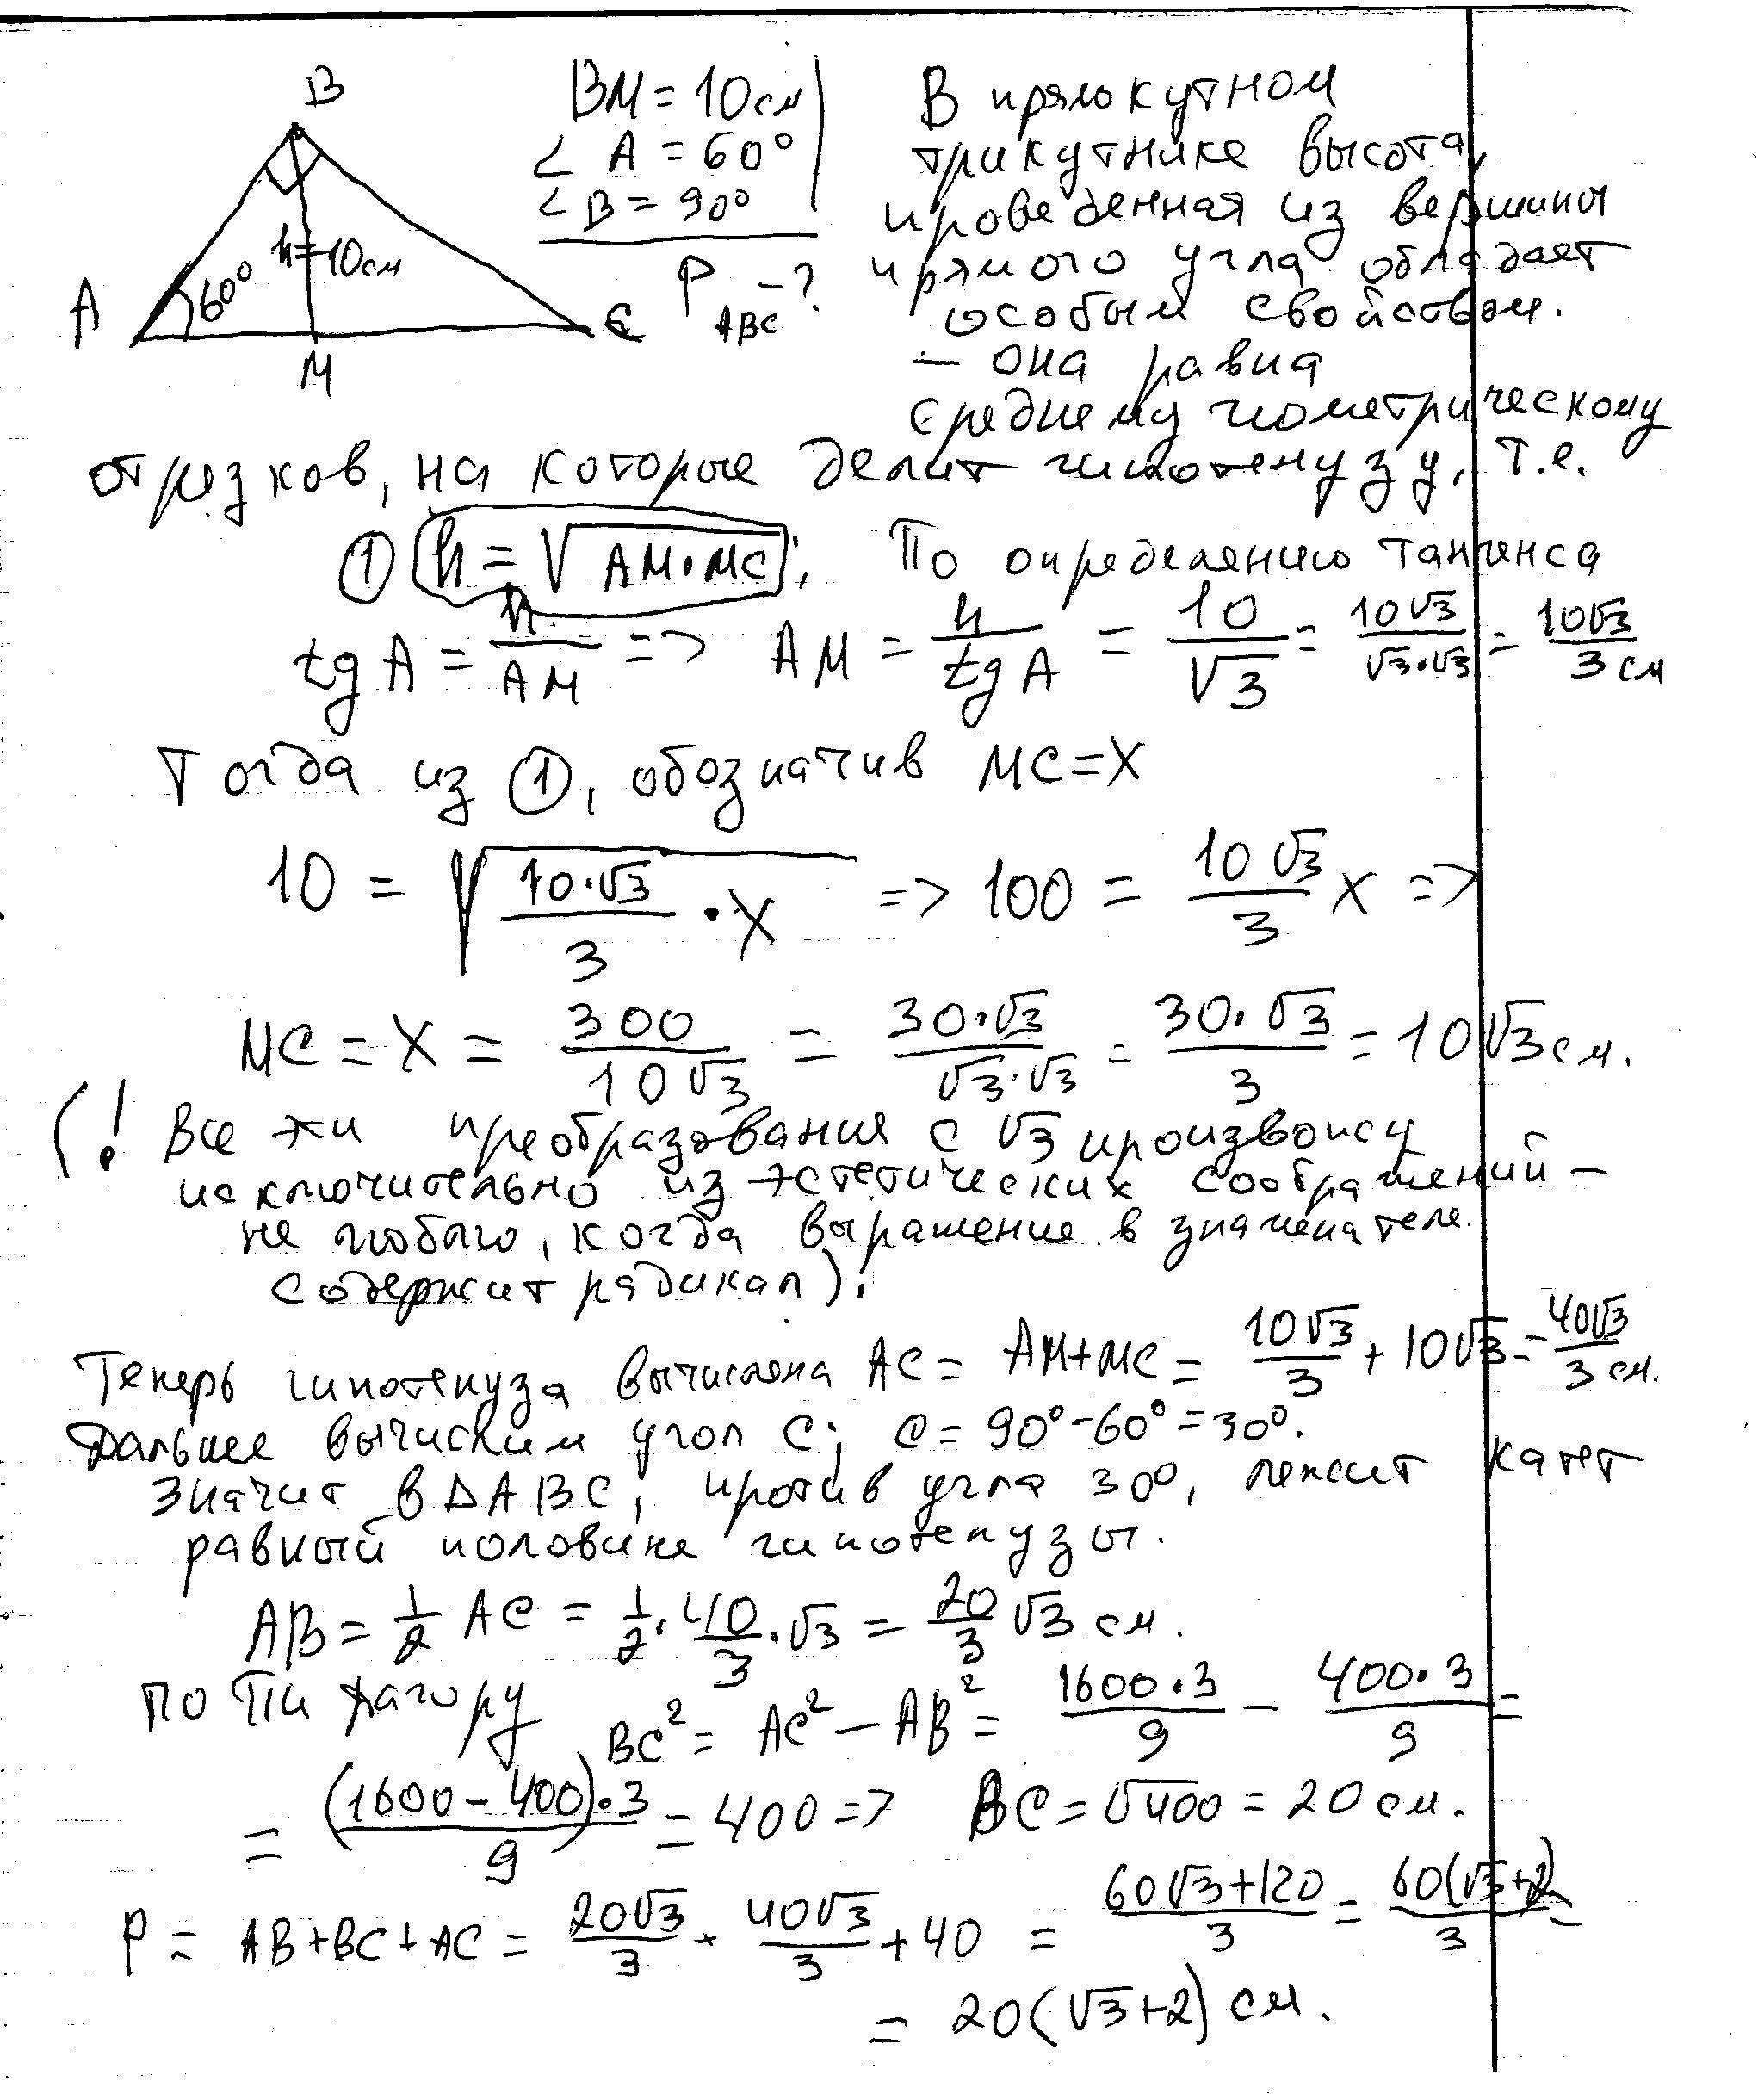 B
A
60°
h=10см
M
C
BM = 10 см
∠ A = 60°
∠ B = 90°
P ABC - ?
В прямокутном
трикутнике высота,
проведенная из вершины
прямого угла обладает
особым свойством.
— она равна
среднему геометрическому
отрезков, на которые делит гипотенузу, т.е.
① h = √AM·MC ; По определению тангенса
tg A = h/AM => AM = h/tg A = 10/√3 = 10√3/√3·√3 = 10√3/3 см
Тогда из ①, обозначив MC = X
10 = √(10·√3/3 · X) => 100 = 10√3/3 X =>
MC = X = 300/10√3 = 30·√3/√3·√3 = 30·√3/3 = 10√3 см.
(! Все эти преобразования с √3 произвожу
исключительно из эстетических соображений —
не люблю, когда выражение в знаменателе
содержит радикал).
Теперь гипотенуза вычислена AC = AM+MC = 10√3/3 + 10√3 = 40√3/3 см.
Дальше вычислим угол C; C = 90° - 60° = 30°.
Значит в ΔABC, против угла 30°, лежит катет
равный половине гипотенузы.
AB = 1/2 AC = 1/2 · 40/3 · √3 = 20/3 √3 см.
По Пифагору BC² = AC² - AB² = 1600·3/9 - 400·3/9 =
= (1600 - 400)·3/9 = 400 => BC = √400 = 20 см.
P = AB + BC + AC = 20√3/3 + 40√3/3 + 40 = 60√3+120/3 = 60(√3+2)/3 =
= 20(√3+2) см.